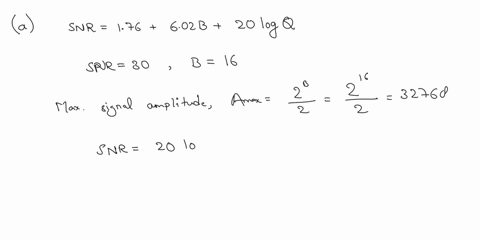 (a) SNR = 1.76 + 6.02B + 20 log Q
SNR = 30 , B = 16
Max. signal amplitude, Amax = 2^B/2 = 2^16/2 = 32768
SNR = 20 lo